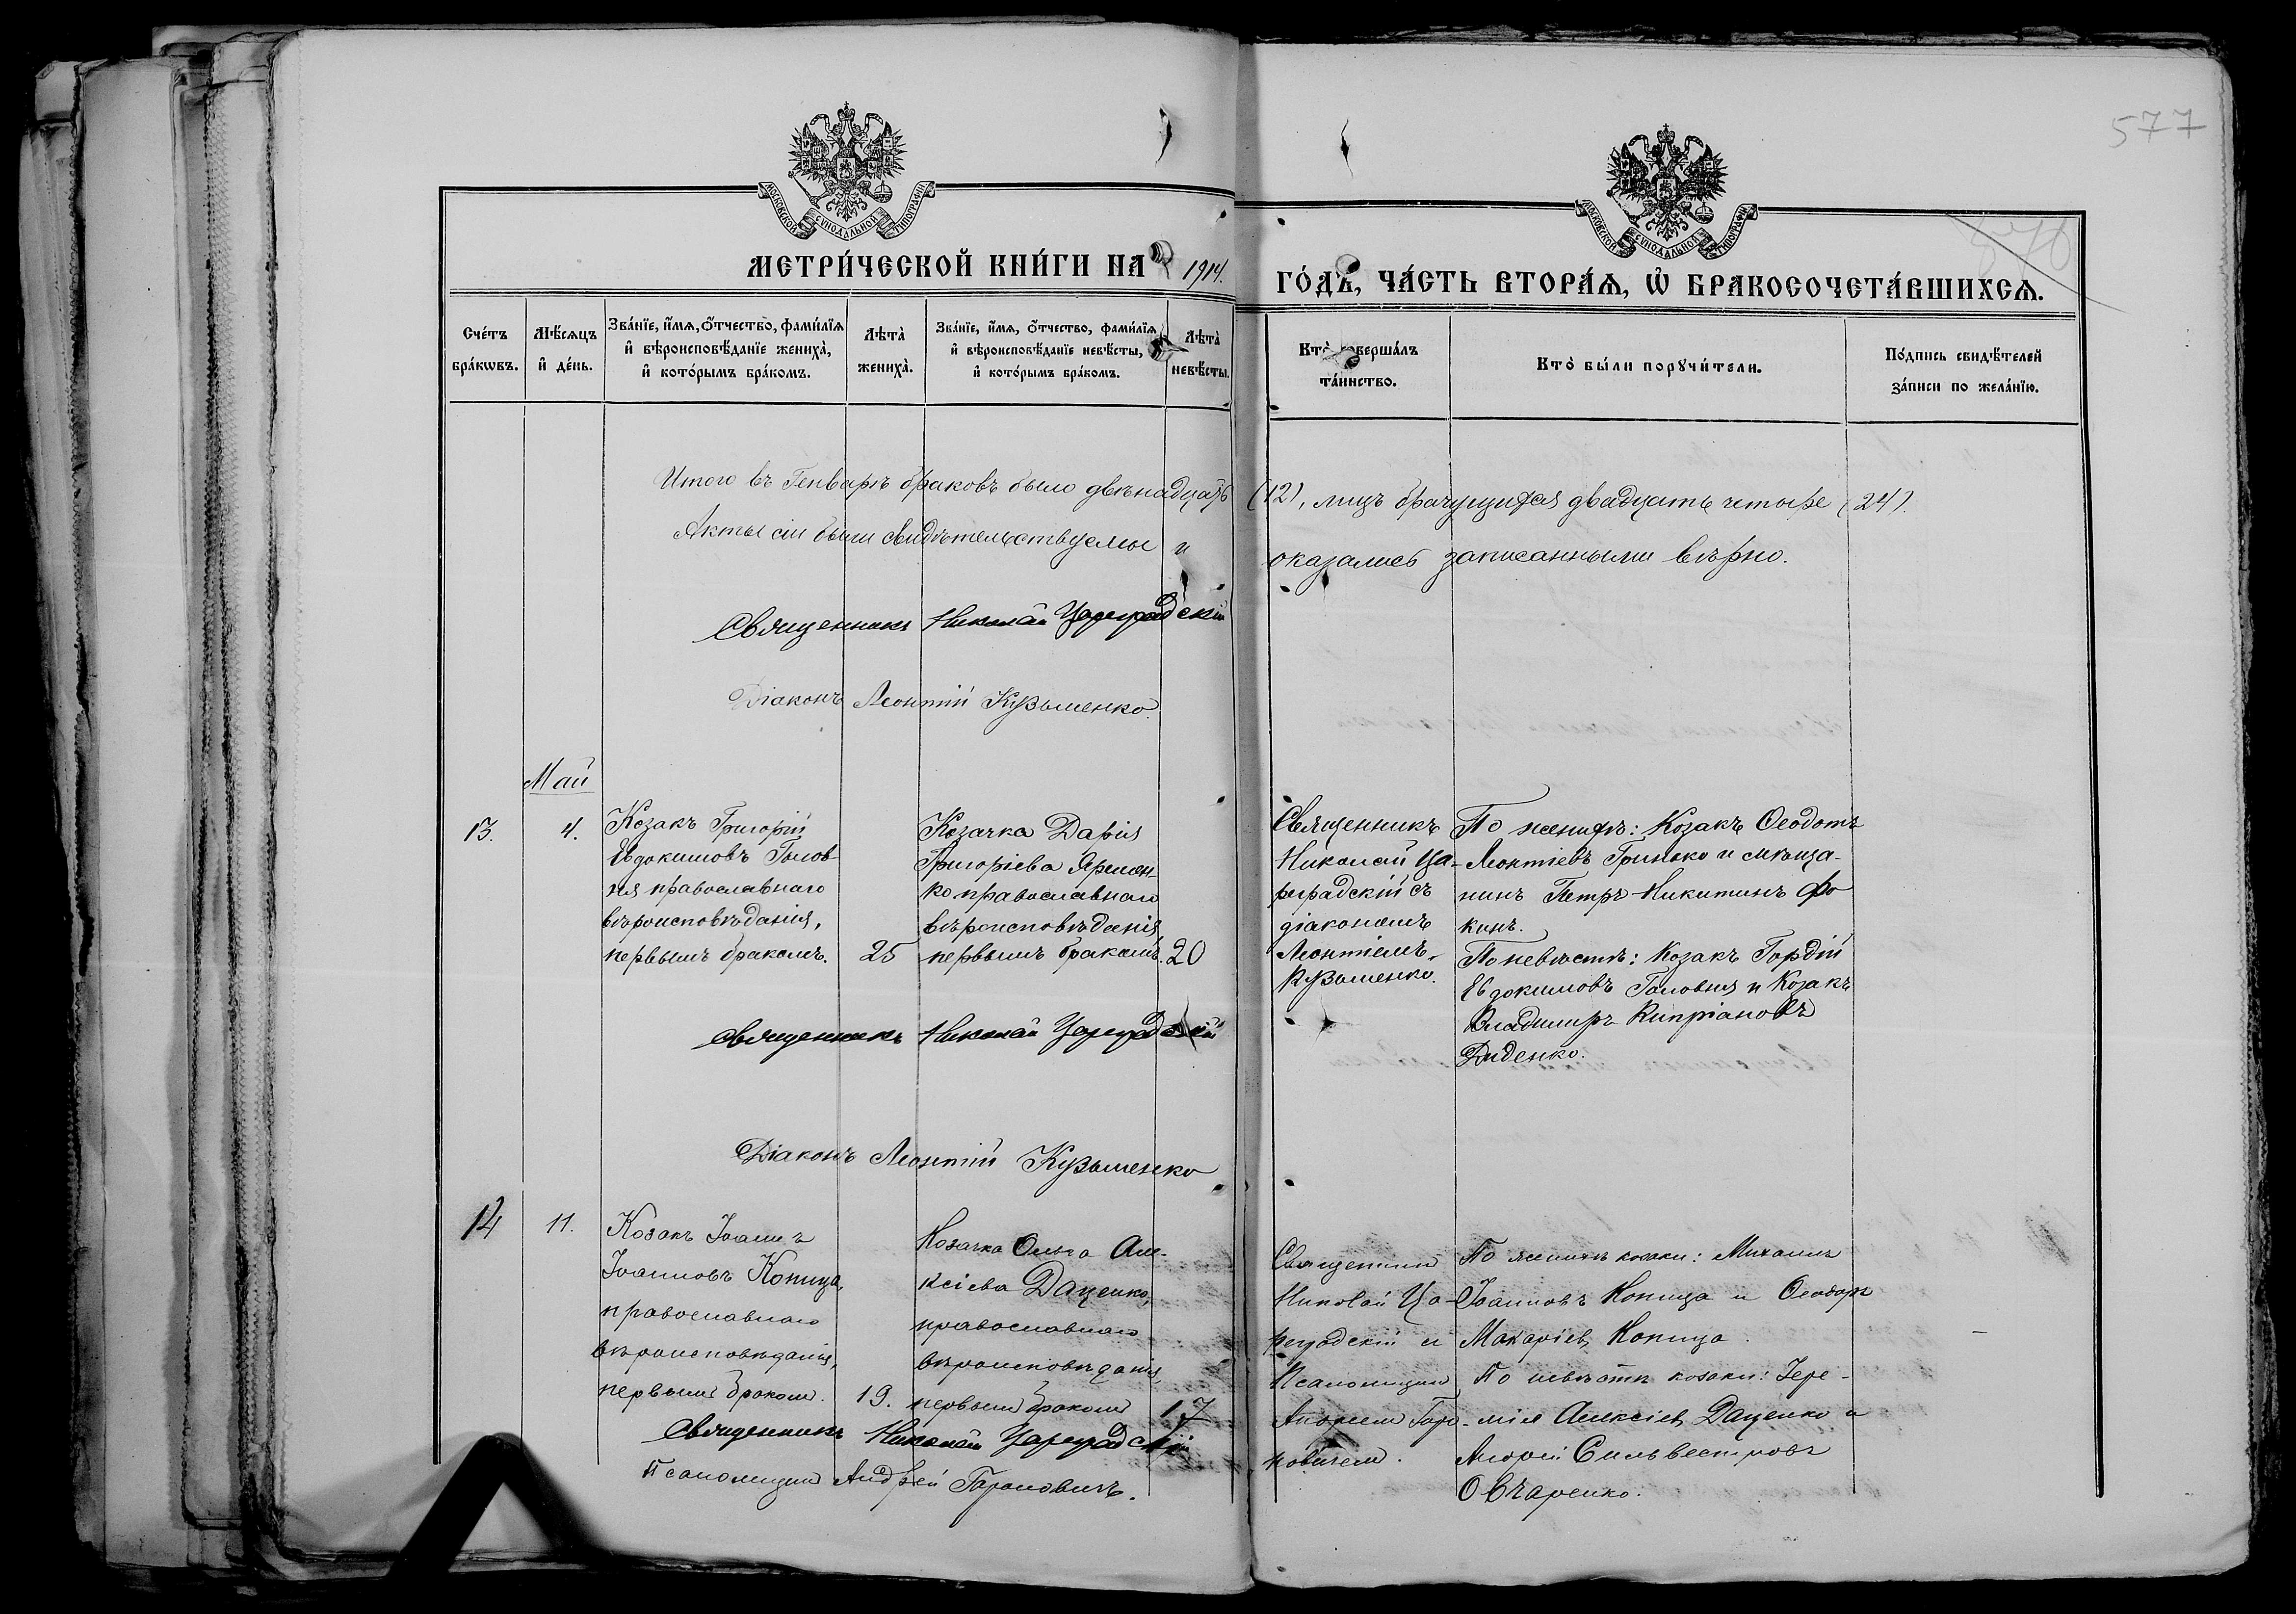 577
МОСКОВСКОЙ СѴНОДАЛЬНОЙ ТИПОГРАФІИ
МОСКОВСКОЙ СѴНОДАЛЬНОЙ ТИПОГРАФІИ
МЕТРИ́ЧЕСКОЙ КНИ́ГИ НА 1914.
ГО́ДЪ, ЧА́СТЬ ВТОРА́Ѧ, Ѡ БРАКОСОЧЕТА́ВШИХСѦ.
Сче́тъ
бра́кѡвъ.
Мѣ́сѧцъ
и҆ де́нь.
Зва́нїе, и҆́мѧ, ѻ҆́тчество, фами́лїѧ
и҆ вѣроисповѣ́данїе жениха̀,
и҆ кото́рымъ бра́комъ.
Лѣта̀
жениха̀.
Зва́нїе, и҆́мѧ, ѻ҆́тчество, фами́лїѧ
и҆ вѣроисповѣ́данїе невѣ́сты,
и҆ кото́рымъ бра́комъ.
Лѣта̀
невѣ́сты.
Кто̀ соверша́лъ
та́инство.
Кто̀ бы́ли порꙋчи́тели.
По́дпись свидѣ́телей
за́писи по жела́нїю.
Итого въ Генварѣ браковъ было двѣнадцать (12), лицъ брачущихся двадцать четыре (24).
Акты сіи были свидѣтельствуемы и оказались записанными вѣрно.
Священникъ Николай Цареградскій
Діаконъ Леонтій Кузьменко.
Май
13.
4.
Козакъ Григорій
Евдокимовъ Голов-
ня православнаго
вѣроисповѣданія,
первымъ бракомъ.
25
Козачка Дарія
Григоріева Яремен-
ко православнаго
вѣроисповѣданія,
первымъ бракомъ.
20
Священникъ
Николай Ца-
реградскій съ
діакономъ
Леонтіемъ
Кузьменко.
По женихѣ: Козакъ Ѳеодотъ
Леонтіевъ Гринько и мѣща-
нинъ Петръ Никитинъ Фо
кинъ.
По невѣстѣ: Козакъ Гордій
Евдокимовъ Головня и Козакъ
Владимиръ Кипріановъ
Диденко.
Священникъ Николай Цареградскій
Діаконъ Леонтій Кузьменко
14
11.
Козакъ Іоаннъ
Іоанновъ Копица,
православнаго
вѣроисповѣданія,
первымъ бракомъ.
19.
Козачка Ольга Але-
ксіева Даценко,
православнаго
вѣроисповѣданія,
первымъ бракомъ
17
Священникъ
Николай Ца-
реградскій съ
Псаломщик.
Андреем Гара-
новичем.
По женихѣ козаки: Михаилъ
Іоанновъ Копица и Ѳеодоръ
Макаріевъ Копица.
По невѣстѣ козаки: Іере-
мія Алексіевъ Даценко и
Андрей Сильвестровъ
Овчаренко.
Священникъ Николай Цареградскій
Псаломщик Андрей Гарановичъ.